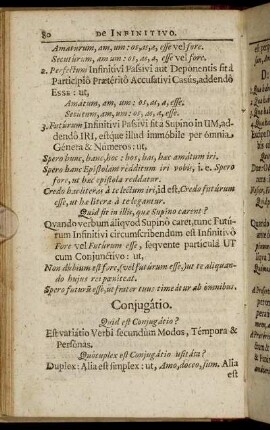 80 DE INFINITIVO.
Amaturum, am, um: os, as, a, esse vel fore.
Secuturum, am, um: os, as, a, esse vel fore.
2. Perfectum Infinitivi Passivi aut Deponentis fit à
Participiô Præteritô Accusativi Casûs, addendô
ESSE: ut,
Amátum, am, um: os, as, a, esse.
Secútum, am, um: os, as, a, esse.
3. Futurum Infinitivi Passivi fit à Supino in UM, ad-
dendô IRI, estque illud immóbile per ómnia,
Génera & Números: ut,
Spero hunc, hanc, hoc: hos, has, hæc amátum iri.
Spero hanc Epistolam redditum iri vobis, i. e. Spero
fore, ut hæc epistola reddatur.
Credo has literas à te lectum iri, id est, Credo futúrum
esse, ut hæ literæ à te legantur.
Quid fit in illis, quæ Supino carent?
Quando verbum aliquod Supino caret, tunc Futú-
rum Infinitivi circumscribendum est Infinitivô
Fore vel Futúrum esse, sequente particulâ UT
cum Conjunctivo: ut,
Non dubium est fore, (vel futúrum esse,) ut te aliquan-
do hujus rei pœniteat.
Spero futurũ esse, ut frater tuus timeatur ab ómnibus.
Conjugátio.
Quid est Conjugátio?
Est variátio Verbi secundùm Modos, Témpora &
Persónas.
Quotuplex est Conjugátio usitáta?
Duplex: Alia est simplex: ut, Amo, doceo, sum. Alia
est